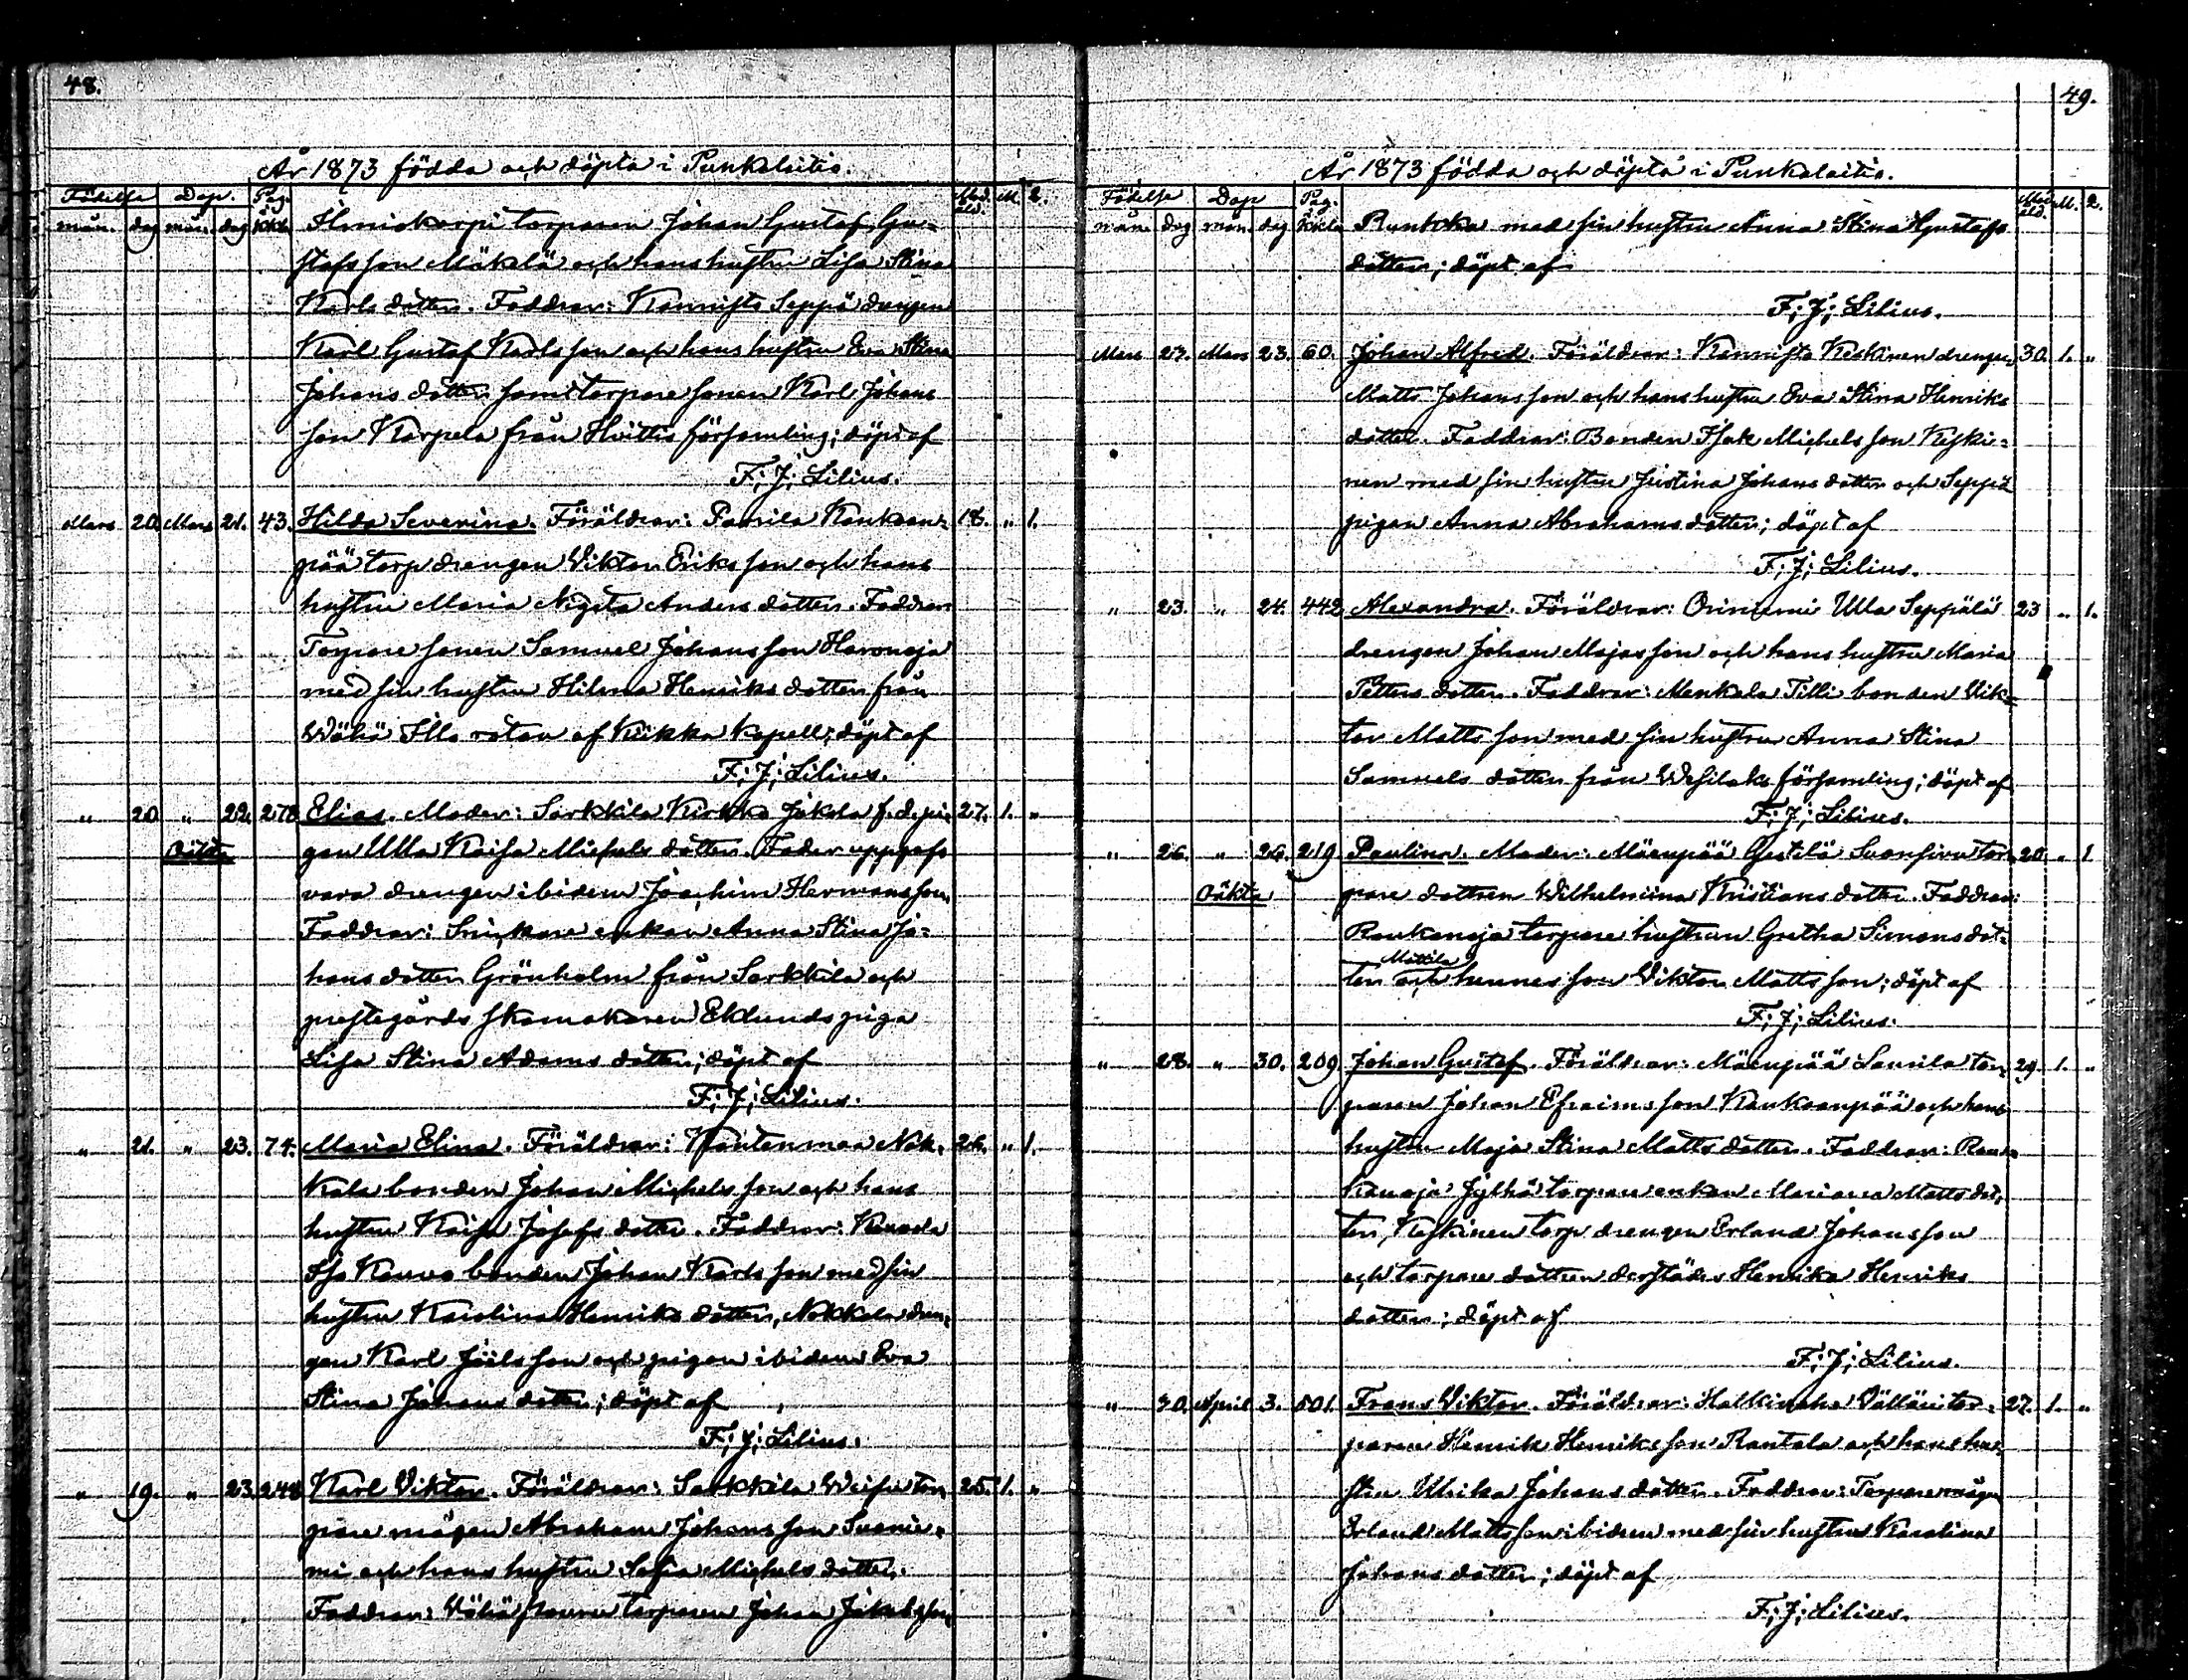 48.
År 1873 födda och döpta i Punkalaitio.
Födelse Dop. Pag. Mod. M. Q.
mån. dag mån. dag kkb. åld.
Ilmiskorpi torparen Johan Gustaf Gu-
stafsson Mäkelä och hans hustru Lisa Stina
Karlsdotter. Faddrar: Kannisto Seppä drengen
Karl Gustaf Karlsson och hans hustru Eva Stina
Johansdotter samt torparesonen Karl Johans
son Karpela från Hvittis församling; döpt af
F; J; Lilius.
Mars 20. Mars 21. 43. Hilda Severina. Föräldrar: Kaukaan- 18. " 1.
pää torp drengen Viktor Eriksson och hans
hustru Maria Andersdotter. Faddrar
Torparesonen Samuel Johansson Haronoja
med sin hustru Hilma Henriksdotter från
Wähä Illo rotan af Kiikka Kapell; döpt af
F; J; Lilius.
" 20 " 22. 278 Elias. Moder: Sarkkila Jakola f. d. pi- 27. 1. "
Oäkta gan Ulla Kaisa Michelsdotter. Fader uppgafs
vara drengen ibidem Joachim Hermansson.
Faddrar: Snickare enkan Anna Stina Jo-
hansdotter Grönholm från Sarkkila och
prestegårds skomakaren Eklunds piga
Lisa Stina Adamsdotter; döpt af
F; J; Lilius.
" 21. " 23. 74. Maria Elina. Föräldrar: Kanteenmaa Nok- 26. " 1.
kala bonden Johan Michelsson och hans
hustru Kaisa Josefsdotter. Faddrar:
Iso Kauvo bonden Johan Karlsson med sin
hustru Karolina Henriksdotter, Nokkala dren-
gen Karl Joelsson och pigan ibidem Eva
Stina Johansdotter; döpt af
F; J; Lilius.
" 19. " 23. 248 Karl Viktor. Föräldrar: Sarkkila tor- 25. 1. "
pare mågen Abraham Johansson Suonie-
mi och hans hustru Sofia Michelsdotter.
Faddrar: torparen Johan Jakobsson
49.
År 1873 födda och döpta i Punkalaitio.
Födelse Dop Pag. Mod. M. Q.
mån. dag mån. dag kkb. åld.
Runkka med sin hustru Anna Stina Gustafs
dotter; döpt af
F; J; Lilius.
Mars 27. Mars 23. 60. Johan Alfred. Föräldrar: Kannisto Keskinen drengen 30. 1. "
Matts Johansson och hans hustru Eva Stina Henriks
dotter. Faddrar: Bonden Isak Michelsson Keski-
nen med sin hustru Justina Johansdotter och Seppä
pigan Anna Abrahamsdotter; döpt af
F; J; Lilius.
" 23. " 24. 442 Alexandra. Föräldrar: Oriniemi Ulla Seppälä 23 " 1.
drengen Johan Majasson och hans hustru Maria
Pettersdotter. Faddrar: Menkala Tilli bonden Vik-
tor Mattsson med sin hustru Anna Stina
Samuelsdotter från Wesilaks församling; döpt af
F; J; Lilius.
" 26. " 26. 219 Paulina. Moder: Mäenpää tor- 20. " 1
Oäkta pare dottren Wilhelmina Kristiansdotter. Faddrar:
Raukanoja torpare hustrun Gretha Simonsdot-
ter Mattila och hennes son Viktor Mattsson; döpt af
F; J; Lilius.
" 28. " 30. 209 Johan Gustaf. Föräldrar: Mäenpää Laurila tor- 29. 1. "
paren Johan Efraimsson Kaukaanpää och hans
hustru Maja Stina Mattsdotter. Faddrar: Rau-
kanoja Jylhä torpare enkan Mariana Mattsdot-
ter, Keskinen torp drengen Erland Johansson
och torpare dottren derstädes Henrika Henriks
dotter; döpt af
F; J; Lilius.
" 30. April 3. 501. Frans Viktor. Föräldrar: tor- 27. 1. "
paren Henrik Henriksson Rantala och hans hu-
stru Ulrika Johansdotter. Faddrar: Torpare mågen
Erland Mattsson ibidem med sin hustru Karolina
Johansdotter; döpt af
F; J; Lilius.